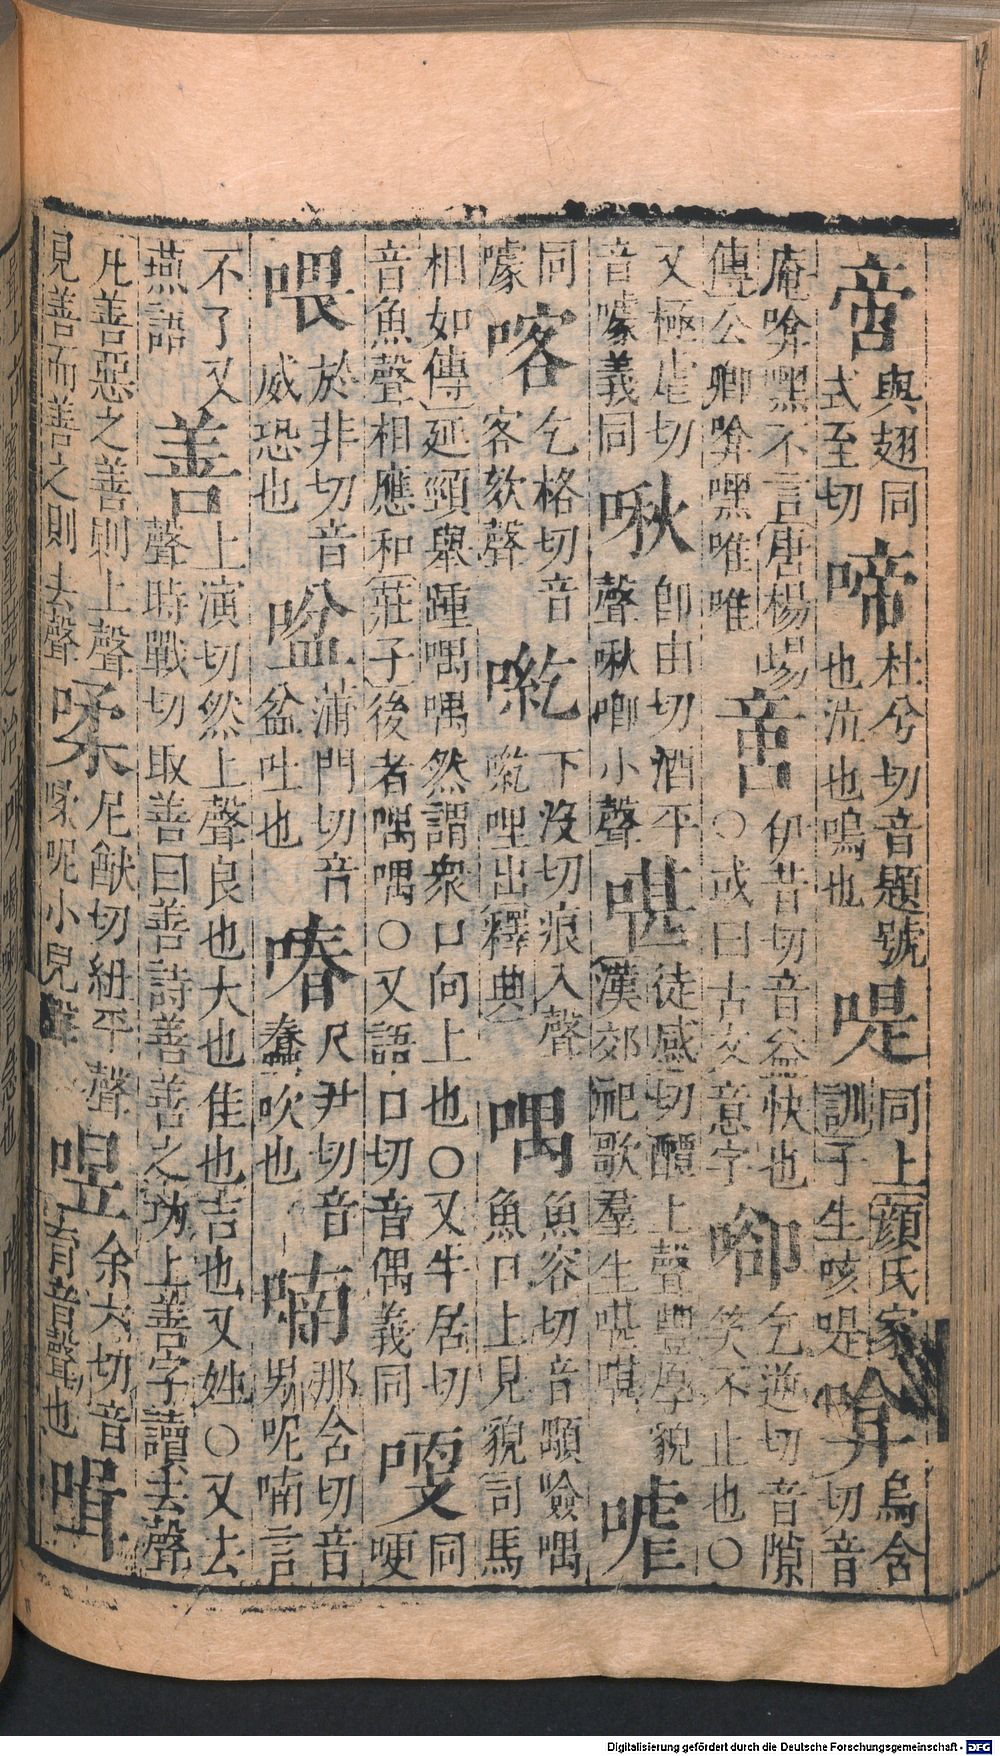 啻與翅同式至切啼杜兮切音題號也泣也鳴也啺同上顔氏家訓子生咳㖷啽烏含切音
庵啽嘿不言唐楊埸傳公卿啽嘿唯唯啻伊昔切音益快也○或曰古文意字㕁乞逆切音隙笑不止也○
又極虐切音噱義同啾即由切酒平聲啾唧小聲啿徒感切醰上聲豐厚貌漢郊祀歌羣生啿啿㖸
同噱喀乞格切音客欬聲㗆下沒切痕入聲哩出釋典喁魚容切音顒噞喁魚口上見貌司馬
相如傳延頸舉踵喁喁然謂衆口向上也○又牛居切音魚聲相應和莊子後者喁喁○又語口切音偶義同㖹同哽
喂於非切音威恐也㖹蒲門切音盆吐也㖺尺尹切音蠢吹也喃那含切音男呢喃言
不了又燕語善上演切然上聲良也大也佳也吉也又姓○又去聲時戰切取善曰善詩善善之功上善字讀去聲
凡善惡之善則上聲見善而善之則去聲㖻尼猷切紐平聲呢小兒聲喅余六切音育音聲也喞
Digitalisierung gefördert durch die Deutsche Forschungsgemeinschaft - DFG